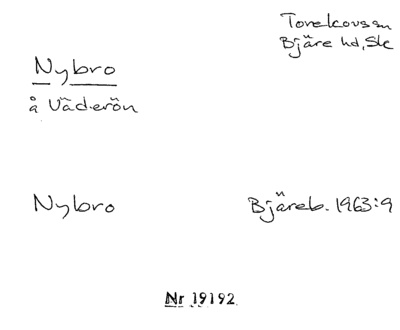 Torekovs sn
Bjäre hd, Sk
Nybro
å Väderön
Nybro
Bjäreb. 1963:9
Nr 19192